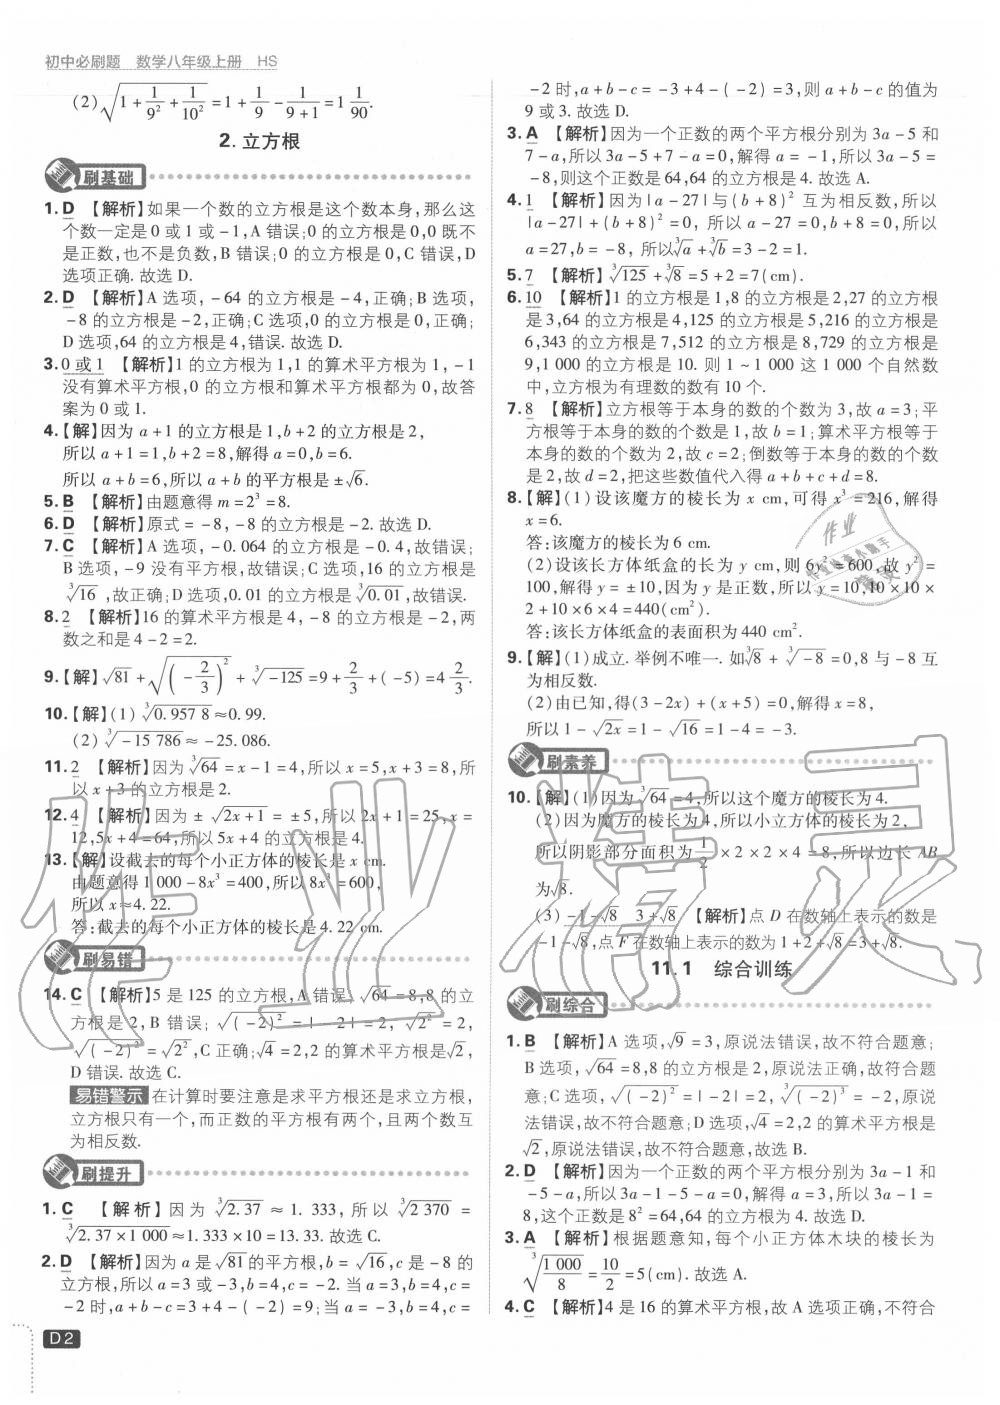 初中必刷题 数学八年级上册 HS
(2)√(1+1/9²+1/10²)=1+1/9-1/(9+1)=1 1/90.
2.立方根
刷基础
1.D 【解析】如果一个数的立方根是这个数本身,那么这
个数一定是0或1或-1,A错误;0的立方根是0,0既不
是正数,也不是负数,B错误;0的立方根是0,C错误,D
选项正确.故选D.
2.D 【解析】A选项,-64的立方根是-4,正确;B选项,
-8的立方根是-2,正确;C选项,0的立方根是0,正确;
D选项,64的立方根是4,错误.故选D.
3.0或1 【解析】1的立方根为1,1的算术平方根为1,-1
没有算术平方根,0的立方根和算术平方根都为0,故答
案为0或1.
4.【解】因为a+1的立方根是1,b+2的立方根是2,
所以a+1=1,b+2=8,解得a=0,b=6.
所以a+b=6,所以a+b的平方根是±√6.
5.B 【解析】由题意得m=2³=8.
6.D 【解析】原式=-8,-8的立方根是-2.故选D.
7.C 【解析】A选项,-0.064的立方根是-0.4,故错误;
B选项,-9没有平方根,故错误;C选项,16的立方根是
∛16,故正确;D选项,0.01的立方根是∛0.01,故错误.
8.2 【解析】16的算术平方根是4,-8的立方根是-2,两
数之和是4-2=2.
9.【解】√81+√(-2/3)²+∛-125=9+2/3+(-5)=4 2/3.
10.【解】(1)∛0.9578≈0.99.
(2)∛-15 786≈-25.086.
11.2 【解析】因为∛64=x-1=4,所以x=5,x+3=8,所
以x+3的立方根是2.
12.4 【解析】因为±√(2x+1)=±5,所以2x+1=25,x=
12,5x+4=64,所以5x+4的立方根是4.
13.【解】设截去的每个小正方体的棱长是x cm.
由题意得1 000-8x³=400,所以8x³=600,
所以x≈4.22.
答:截去的每个小正方体的棱长是4.22 cm.
刷易错
14.C 【解析】5是125的立方根,A错误;√64=8,8的立
方根是2,B错误;√(-2)²=|-2|=2,√2²=2,
√(-2)²=√2²,C正确;√4=2,2的算术平方根是√2,
D错误.故选C.
易错警示 在计算时要注意是求平方根还是求立方根,
立方根只有一个,而正数的平方根有两个,且两个数互
为相反数.
刷提升
1.C 【解析】因为∛2.37≈1.333,所以∛2 370=
∛(2.37×1 000)≈1.333×10=13.33.故选C.
2.D 【解析】因为a是√81的平方根,b=√16,c是-8的
立方根,所以a=3或-3,b=4,c=-2.当a=3,b=4,c=
-2时,a+b-c=3+4-(-2)=9;当a=-3,b=4,c=
D2
-2时,a+b-c=-3+4-(-2)=3,则a+b-c的值为
9或3.故选D.
3.A 【解析】因为一个正数的两个平方根分别为3a-5和
7-a,所以3a-5+7-a=0,解得a=-1,所以3a-5=
-8,则这个正数是64,64的立方根是4.故选A.
4.1 【解析】因为|a-27|与(b+8)²互为相反数,所以
|a-27|+(b+8)²=0,所以a-27=0,b+8=0,所以
a=27,b=-8,所以∛a+∛b=3-2=1.
5.7 【解析】∛125+∛8=5+2=7(cm).
6.10 【解析】1的立方根是1,8的立方根是2,27的立方根
是3,64的立方根是4,125的立方根是5,216的立方根是
6,343的立方根是7,512的立方根是8,729的立方根是
9,1 000的立方根是10.则1~1 000这1 000个自然数
中,立方根为有理数的数有10个.
7.8 【解析】立方根等于本身的数的个数为3,故a=3;平
方根等于本身的数的个数是1,故b=1;算术平方根等于
本身的数的个数为2,故c=2;倒数等于本身的数的个数
是2,故d=2,把这些数值代入得a+b+c+d=8.
8.【解】(1)设该魔方的棱长为x cm,可得x³=216,解得
x=6.
答:该魔方的棱长为6 cm.
(2)设该长方体纸盒的长为y cm,则6y²=600,故y²=
100,解得y=±10,因为y是正数,所以y=10,10×10×
2+10×6×4=440(cm²).
答:该长方体纸盒的表面积为440 cm².
9.【解】(1)成立.举例不唯一.如∛8+∛-8=0,8与-8互
为相反数.
(2)由已知,得(3-2x)+(x+5)=0,解得x=8,
所以1-√2x=1-√16=1-4=-3.
刷素养
10.【解】(1)因为∛64=4,所以这个魔方的棱长为4.
(2)因为魔方的棱长为4,所以小立方体的棱长为2,
所以阴影部分面积为1/2×2×2×4=8,所以边长AB
为√8.
(3)-1-√8 3+√8 【解析】点D在数轴上表示的数是
-1-√8,点F在数轴上表示的数为1+2+√8=3+√8.
11.1 综合训练
刷综合
1.B 【解析】A选项,√9=3,原说法错误,故不符合题意;
B选项,√64=8,8的立方根是2,原说法正确,故符合题
意;C选项,√(-2)²=|-2|=2,∛(-2)³=-2,原说
法错误,故不符合题意;D选项,√4=2,2的算术平方根是
√2,原说法错误,故不符合题意.故选B.
2.D 【解析】因为一个正数的两个平方根分别为3a-1和
-5-a,所以3a-1-5-a=0,解得a=3,所以3a-1=
8,这个正数是8²=64,64的立方根是4.故选D.
3.A 【解析】根据题意知,每个小正方体木块的棱长为
∛(1 000/8)=10/2=5(cm).故选A.
4.C 【解析】4是16的算术平方根,故A选项正确,不符合